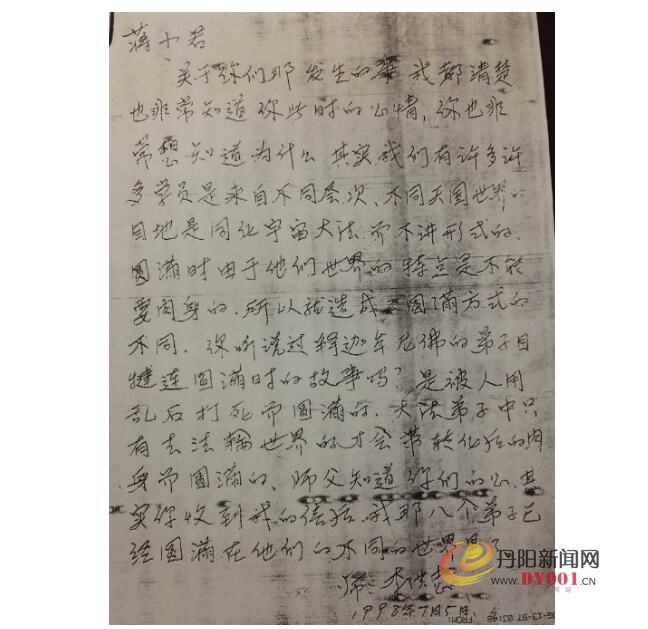 蒋小君
关于你们那发生的事我都清楚
也非常知道你此时的心情，你也非
常想知道为什么 其实我们有许多许
多学员是来自不同层次、不同天国世界的
目地是同化宇宙大法.而不讲形式的.
圆满时由于他们世界的特点是不能
要肉身的.所以就造成了圆满方式的
不同. 你听说过释迦牟尼佛的弟子目
犍连圆满时的故事吗？是被人用
乱石打死而圆满的. 大法弟子中只
有去法轮世界的才会带转化后的肉
身而圆满的、师父知道你们的心.其
实你收到我的信后.我那八个弟子已
经圆满在他们的不同的世界里了
师：李洪志
1998年7月5日
FROM:
-13-97 03:
丹阳新闻网
WWW.DY001.CN